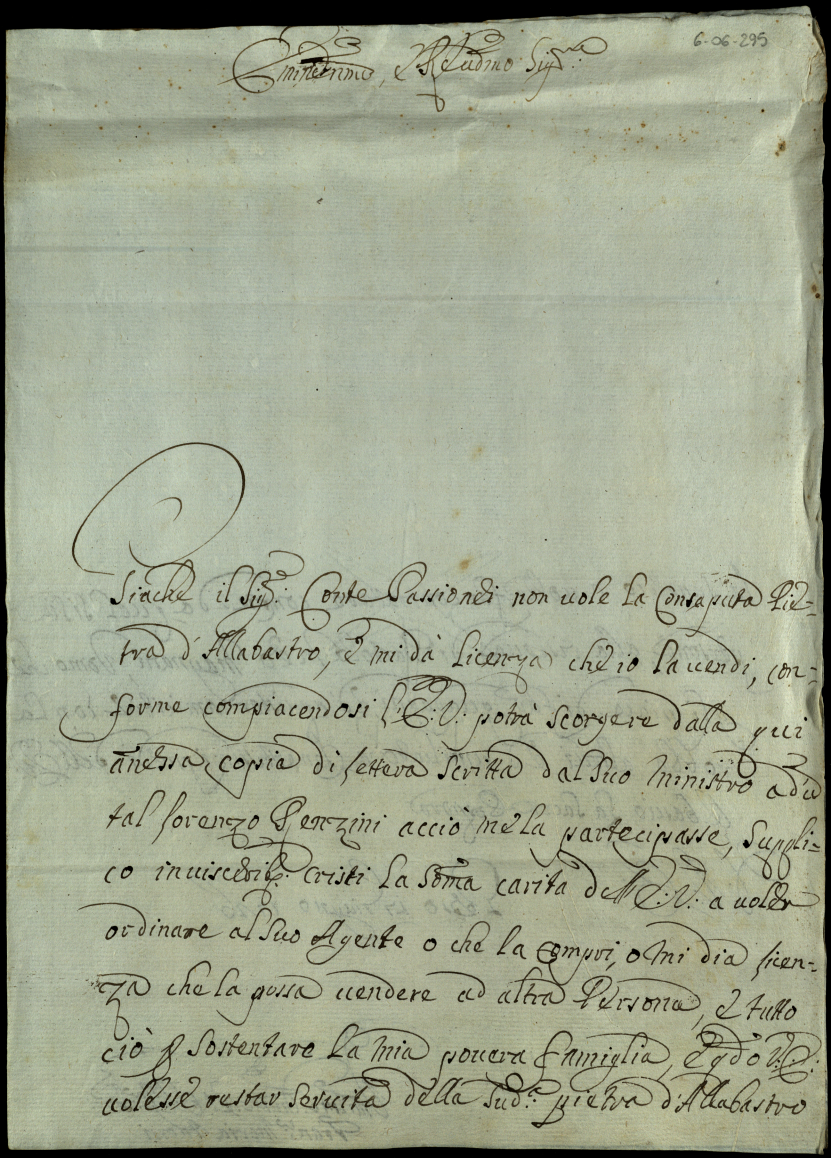 6-06-295
Eminentmo, e Reudmo Sig.re
Siache il Sig.r Conte Passionei non uole la Consaputa Pie=
tra d'Allabastro, e mi dà Licenza che io la uendi, con=
forme compiacendosi l'E: V: potrà scorgere dalla qui
anessa copia di lettera scritta dal suo Ministro ad u
tal Lorenzo Penzini acciò me la partecipasse, suppli=
co inuiscerib: cristi la soma carita dell'E: V: a uoler
ordinare al suo Agente o che la compri, o mi dia licen=
za che la possa uendere ad altra Persona, e tutto
ciò p sostentare la mia pouera famiglia, e qdo V: E:
uolesse restar seruita della sud.a pietra d'Allabastro